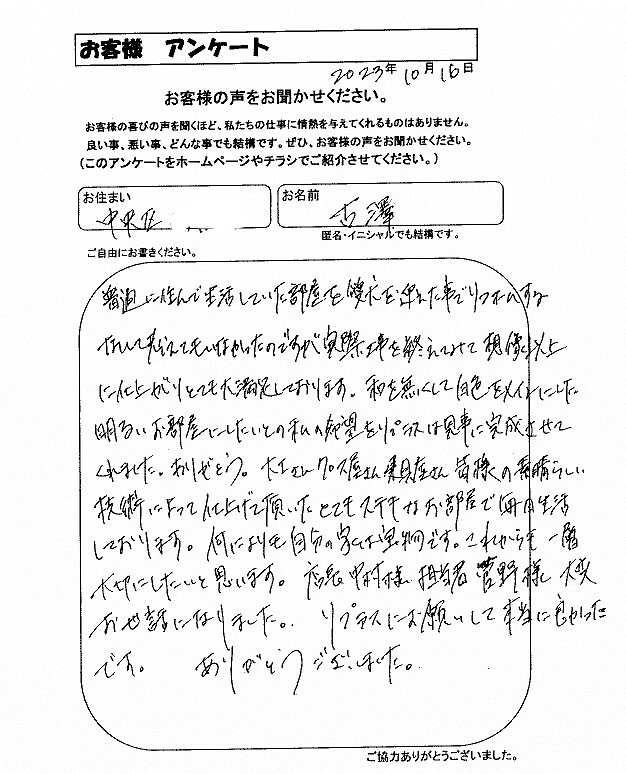 お客様 アンケート
2023年10月16日
お客様の声をお聞かせください。
お客様の喜びの声を聞くほど、私たちの仕事に情熱を与えてくれるものはありません。
良い事、悪い事、どんな事でも結構です。ぜひ、お客様の声をお聞かせください。
(このアンケートをホームページやチラシでご紹介させてください。)
お住まい
中央区
お名前
古澤
匿名・イニシャルでも結構です。
ご自由にお書きください。
普通に住んで生活していた部屋を愛犬を迎えた事でリフォームする
なんて考えてもいなかったのですが実際工事を終えてみて想像以上
に仕上がりとても大満足しております。和を無くして白色をメインにした
明るいお部屋にしたいとの私の希望をリプラスは見事に完成させて
くれました。ありがとう。大工さんクロス屋さん建具屋さん皆様の素晴らしい
技術によって仕上げて頂いたとてもステキなお部屋で毎日生活
しております。何よりも自分の家は宝物です。これからも一層
大切にしたいと思います。店長中村様 担当者菅野様 大変
お世話になりました。リプラスにお願いして本当に良かった
です。ありがとうございました。
ご協力ありがとうございました。